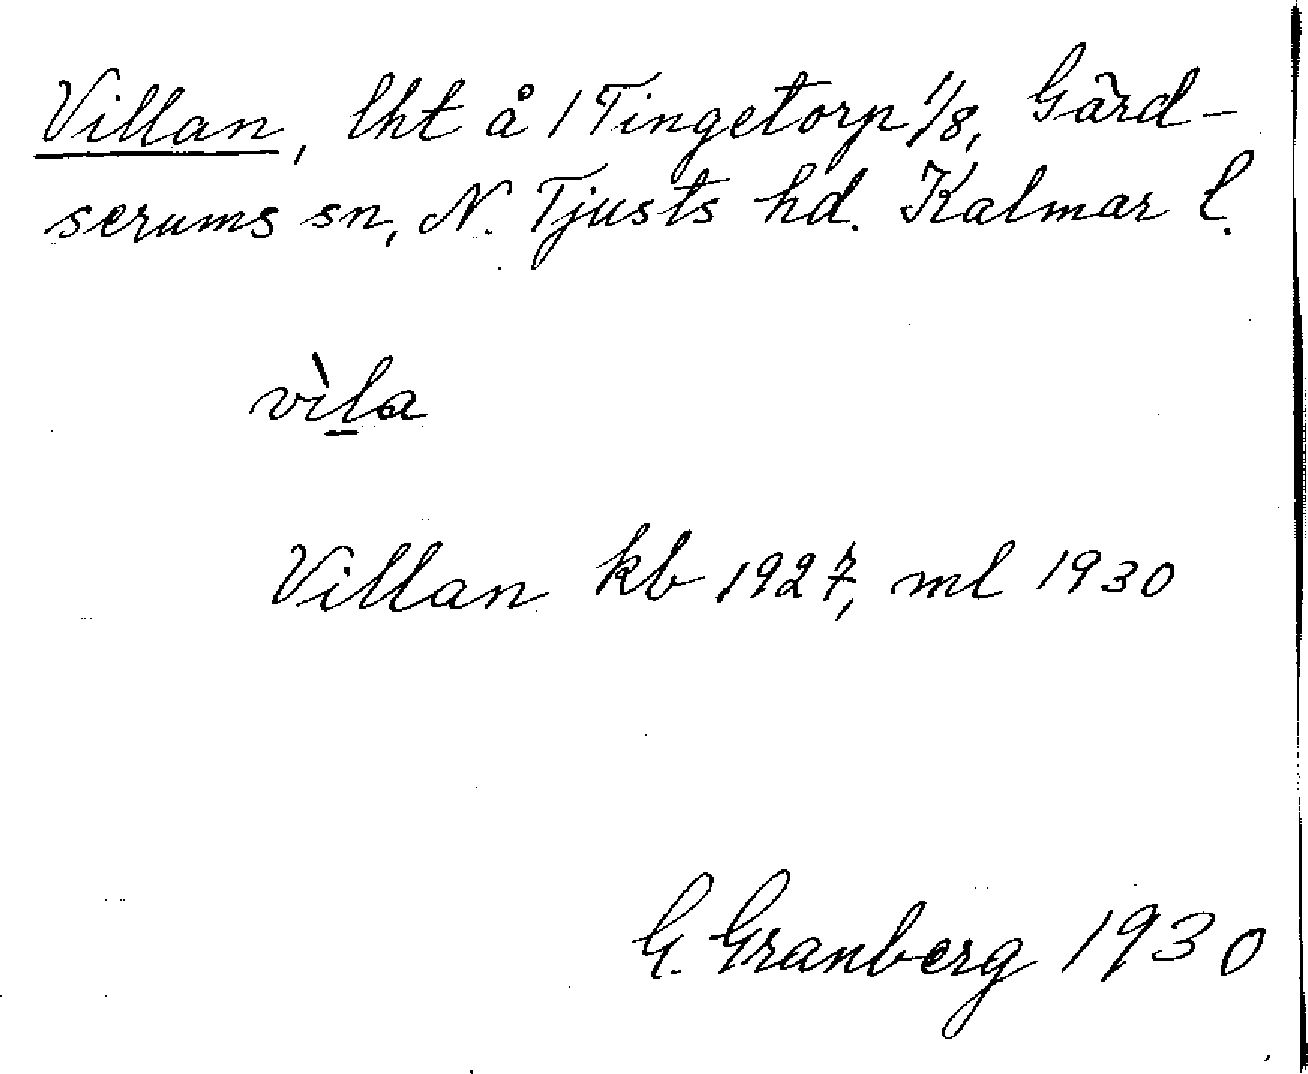 Villan, lht å 1 Tingetorp 1/8, Gärd-
serums sn, N. Tjusts hd. Kalmar l.
vìl̲a
Villan kb 1927, ml 1930
G. Granberg 1930